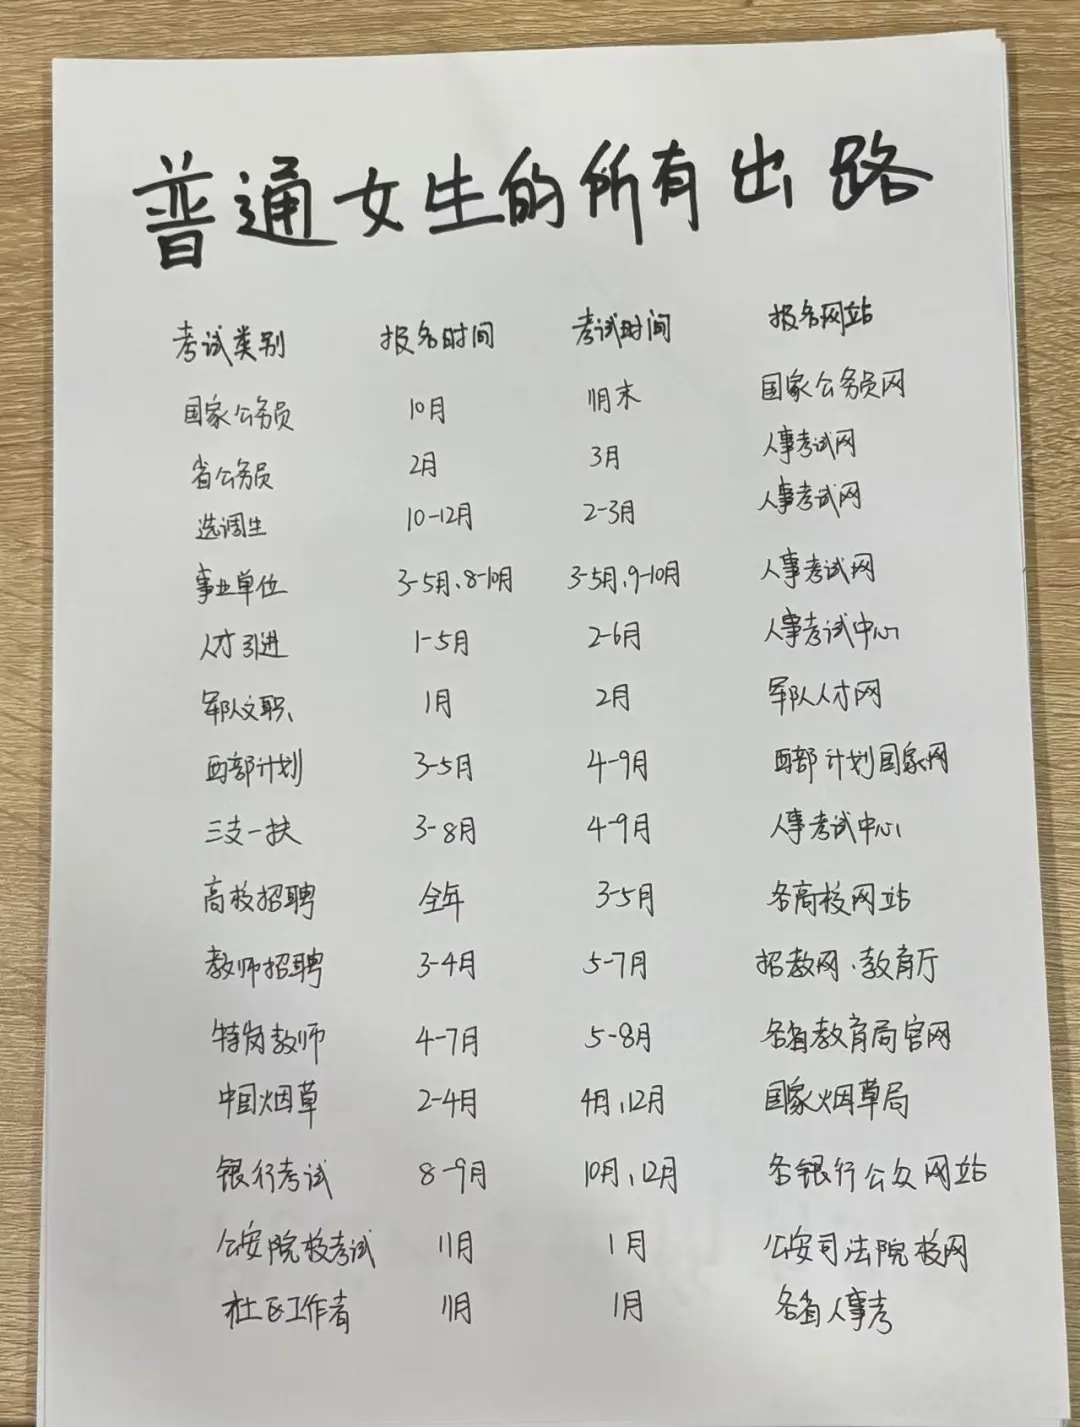 普通女生的所有出路
考试类别 报名时间 考试时间 报名网站
国家公务员 10月 11月末 国家公务员网
省公务员 2月 3月 人事考试网
选调生 10-12月 2-3月 人事考试网
事业单位 3-5月、8-10月 3-5月,9-10月 人事考试网
人才引进 1-5月 2-6月 人事考试中心
军队文职、 1月 2月 军队人才网
西部计划 3-5月 4-9月 西部计划国家网
三支一扶 3-8月 4-9月 人事考试中心
高校招聘 全年 3-5月 各高校网站
教师招聘 3-4月 5-7月 招教网、教育厅
特岗教师 4-7月 5-8月 各省教育局官网
中国烟草 2-4月 4月、12月 国家烟草局
银行考试 8-9月 10月、12月 各银行公众网站
公安院校考试 11月 1月 公安司法院校网
社区工作者 11月 1月 各省人事考